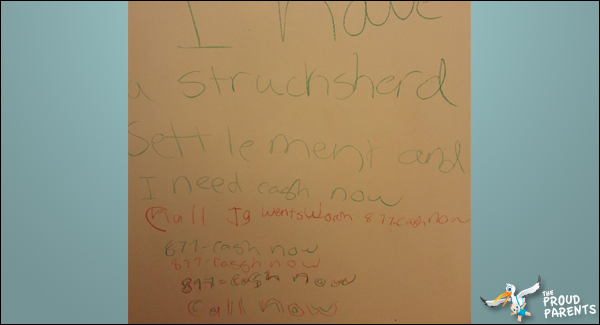 I Have
a struchsherd
Settlement and
I need cash now
Call Jg wentsworth 877-cash now
877-cash now
877-cassh now
877-cash now
Call now
THE
PROUD
PARENTS